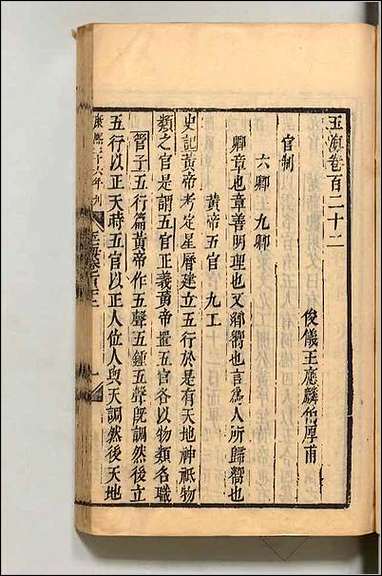 玉海卷百二十二
浚儀王應麟伯厚甫
官制
六卿 九卿
卿章也章善明理也又卿嚮也言爲人所歸嚮也
黃帝五官 九工
史記黃帝考定星曆建立五行於是有天地神祇物
類之官是謂五官正義黃帝置五官各以物類名職
管子五行篇黃帝作五聲五鍾五聲旣調然後立
五行以正天時五官以正人位人與天調然後天地
康熙二十六年刊
玉海卷百二十二
一